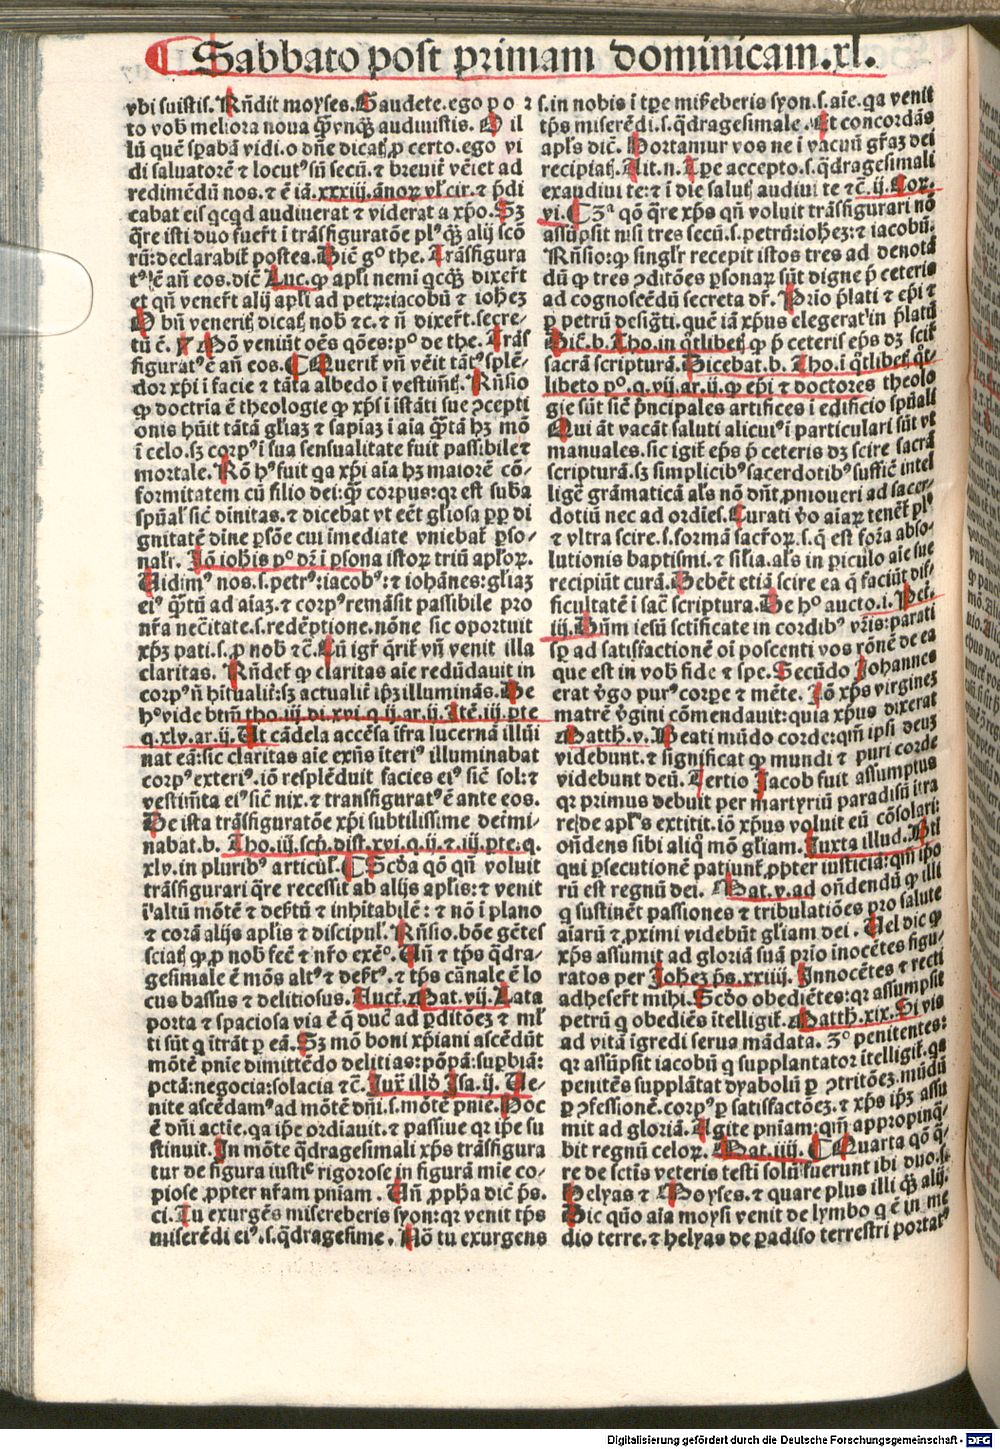 ¶ Sabbato post primam dominicam.xl.
vbi fuistis. Rn̄dit moyses. Gaudete. ego po
to vob̄ meliora noua q̄ vnq̄ꝫ audiuistis. O il
lū quē sp̄abā vidi. o dn̄e dicaꝭ, ꝓ certo. ego vi
di saluatorē ⁊ locutꝰ sū secū. ⁊ breuiṫ vēiet ad
redimēdū nos. ⁊ ē iā. xxxiij. ānoꝝ vl̄ cir. ⁊ p̄di
cabat eis qcqd audiuerat ⁊ viderat a xp̄o. Sꝫ
q̄re isti duo fuer̄t ī trāsfiguratōe plꝰ q̄ꝫ alij scō
rū: declarabiṫ postea. Dicē gͦ the. Trāsfigura
tꝰ ē añ eos. dic̄ Luc. ꝙ apl̄i nemi qcq̄ꝫ dixer̄t
et qñ vener̄t alij apl̄i ad petꝝ: iacobū ⁊ iohēꝫ
O bn̄ veneriꝭ dicaꝭ nob̄ ⁊c. ⁊ n̄ dixer̄t. secre-
tū ē. Mō veniūt oēs qōes: pͦ de the. Trās
figuratꝰ ē añ eos. ¶ Querit̄ vn̄ vēit tātꝰ splē-
dor xp̄i ī facie ⁊ tāta albedo ī vestimꝭ. Rn̄sio
ꝙ doctria ē theologie ꝙ xp̄s ī istāti sue ꝯcepti
onis hūit tātā gl̄iaꝫ ⁊ sapiaꝫ ī aīa q̄tā hꝫ mō
ī celo. sꝫ corpꝰ ī sua sensualitate fuit passibile ⁊
mortale. Rō hꝰ fuit qa xp̄i aīa hꝫ maiorē cō-
formitatem cū filio dei: q̄ꝫ corpus: qr est suba
sp̄ual̄ sic̄ diuitas. ⁊ dicebat vt eēt gl̄iosa ꝓp di
gnitatē dine ꝑsōe cui imediate vniebat̄ ꝑso-
nalr̄. Iō iohis pͦ dr̄ ī ꝑsona istoꝝ triū apl̄oꝝ.
Vidimꝰ nos. s. petrꝰ: iacobꝰ: ⁊ iohānes: gl̄iaꝫ
eiꝰ q̄tū ad aīaꝫ. ⁊ corpꝰ remāsit passibile pro
nr̄a necītate. s. redēptione. nōne sic oportuit
xp̄ꝫ pati. s. ꝓ nob̄ ⁊c̄. Cū igr̄ q̄rit̄ vn̄ venit illa
claritas. Rn̄det̄ ꝙ claritas aīe redūdauit in
corpꝰ n̄ hītualiṫ: sꝫ actualiṫ ip̄ꝫ illuminās. De
hͦ vide btm̄ tho. iij. di. xvi. q. ij. ar. ij. Itē. iij. pte
q. xlv. ar. ij. Ut cādela accēsa īfra lucernā illūi
nat eā: sic claritas aīe exn̄s īteriꝰ illuminabat
corpꝰ exteriꝰ. iō resplēduit facies eiꝰ sic̄ sol: ⁊
vestimta eiꝰ sic̄ nix. ⁊ transfiguratꝰ ē ante eos.
De ista trāsfiguratōe xp̄i subtilissime det̄mi-
nabat. b. Tho. iij. scp̄. dist. xvi. q. ij. ⁊. iij. pte. q.
xlv. in pluribꝰ articul̄. ¶ Scd̄a qō qn̄ voluit
trāsfigurari q̄re recessit ab alijs apl̄is: ⁊ venit
ī altū mōtē ⁊ dep̄tū ⁊ inhitabilē: ⁊ nō ī plano
⁊ corā alijs apl̄is ⁊ discipul̄. Rn̄sio. bōe gētes
sciaꝭ ꝙ ꝓ nob̄ fec̄ ⁊ nr̄o exēᵒ. Uñ ⁊ tp̄s q̄dra-
gesimale ē mōs altꝰ ⁊ defr̄tꝰ. ⁊ tp̄s cānale ē lo
cus bassus ⁊ delitiosus. Auct̄. Mat. vij. Lata
porta ⁊ spaciosa via ē q̄ duc̄ ad ꝑditōeꝫ ⁊ ml̄
ti sūt q ītrāt ꝑ eā. Sꝫ mō boni xp̄iani ascēdūt
mōtē pn̄ie dimittēdo delitias: pōpā: supbiā:
pctā: negocia: solacia ⁊c̄. Iux̄ illd̄ Isa. ij. Ve-
nite ascēdamꝰ ad mōtē dn̄i. s. mōtē pn̄ie. Hoc
ē dn̄i actīe. qa ip̄e ordīauit. ⁊ passiue qr ip̄e su
stinuit. In mōte q̄dragesimali xp̄s trāsfigura
tur de figura iustiᵉ rigorose in figurā mīe co-
piose ꝓpter nr̄am pn̄iam. Uñ ꝓp̄ha dic̄ p̄s.
ci. Tu exurgēs misereberis syon: qr venit tp̄s
miserēdi eiꝰ. s. q̄dragesime. Nō tu exurgens
⁊ s. in nobis ī tp̄e mis̄eberis syon. s. aīe. qa venit
tp̄s miserēdi. s. q̄dragesimale. Et concordās
apl̄s dic̄. Hortamur vos ne ī vacuū gr̄aꝫ dei
recipiaꝭ. Ait. n. Tp̄e accepto. s. q̄dragesimali
exaudiui te: ⁊ ī die saluꝭ audiui te ⁊c̄. ij. Cor.
vi. ¶ 3ª qō q̄re xp̄s qn̄ voluit trāsfigurari nō
assūpsit nisi tres secū. s. petrū: iohēꝫ: ⁊ iacobū.
Rn̄sio: ꝙ singlr̄ recepit istos tres ad denotā
dū ꝙ tres ꝯditōes ꝑsonaꝝ sūt digne p̄ ceteris
ad cognoscēdū secreta dr̄. Prio p̄lati ⁊ ep̄i ⁊
ꝑ petrū desigti. quē iā xp̄us elegerat in p̄latū
Dic̄. b. Tho. in q̄tlibeꝭ ꝙ p̄ ceteris ep̄s dꝫ scir̄
sacrā scripturā. Dicebat. b. Tho. ī q̄tlibeꝭ. q̄t-
libeto pͦ. q. vij. ar. ij. ꝙ ep̄i ⁊ doctores theolo
gie sūt sic̄ p̄ncipales artifices ī edificio sp̄uali
Qui āt vacāt saluti alicuiꝰ ī particulari sūt vt
manuales. sic igit̄ ep̄s p̄ ceteris dꝫ scire sacrā
scripturā. sꝫ simplicibꝰ sacerdotibꝰ suffic̄ intel
ligē grāmaticā als̄ nō dn̄t ꝓmoueri ad sacer-
dotiū nec ad ordīes. Curati v̄o aīaꝝ tenēt̄ plꝰ
⁊ vltra scire. s. formā sacr̄oꝝ. s. q̄ est for̄a abso-
lutionis baptismi. ⁊ sil̄ia. als̄ in ꝑiculo aīe sue
recipiūt curā. Debēt etiā scire ea q̄ faciūt dif-
ficultatē ī sac̄ scriptura. De hͦ aucto. i. Pet.
iij. Dn̄m iesū sctīficate in cordibꝰ vr̄is: parati
sp̄ ad satisfactionē oī poscenti vos rōnē de ea
que est in vob̄ fide ⁊ spe. Secūdo Johannes
erat v̄go purꝰ corpe ⁊ mēte. Iō xp̄s virgineꝫ
matrē v̄gini cōmendauit: quia xp̄us dixerat
Matth. v. Beati mūdo corde: qm̄ ipsi deuꝫ
videbunt. ⁊ significat ꝙ mundi ⁊ puri corde
videbunt deū. Tertio Jacob fuit assūmptus
qr primus debuit per martyriū paradisū ītra
re: de apl̄is extitit. iō xp̄us voluit eū cōsolari:
on̄dens sibi aliqͫ mō gl̄iam. Juxta illud. Bti
qui ꝑsecutionē patiunt̄ ꝓpter iusticiā: qm̄ ipo
rū est regnū dei. Mat. v. ad on̄dendū ꝙ illi
q sustinēt passiones ⁊ tribulatiōes pro salute
aīarū ⁊ ꝓximi videbūt gl̄iam dei. Uel dic ꝙ
xp̄s assumit ad gloriā suā prīo inocētes figu-
ratos per Johēꝫ p̄s. xxiiij. Innocētes ⁊ recti
adheser̄t mihi. Scd̄o obediētes: qr assumpsit
petrū q obediēs ītelligit̄. Matth. xix. Si vis
ad vitā īgredi serua mādata. 3ͦ penitentes:
qr assūpsit iacobū q supplantator ītelligit̄. qa
penitēs supplātat dyabolū ꝑ ꝯtritōeꝫ. mūdū
ꝑ ꝯfessionē. corpꝰ ꝑ satisfactōeꝫ. ⁊ xp̄s ip̄ꝫ assu
mit ad gloriā. Agite pn̄iam: qm̄ appropinq̄-
bit regnū celoꝝ. Mat. iiij. ¶ Quarta qō q̄-
re de sctīs veteris testi solū fuerunt ibi duo. s.
Helyas ⁊ Moyses. ⁊ quare plus illi q̄ꝫ alij.
Dic qn̄o aīa moysi venit de lymbo q ē in me
dio terre. ⁊ helyas de ꝑadiso terrestri portatꝰ
Digitalisierung gefördert durch die Deutsche Forschungsgemeinschaft - DFG